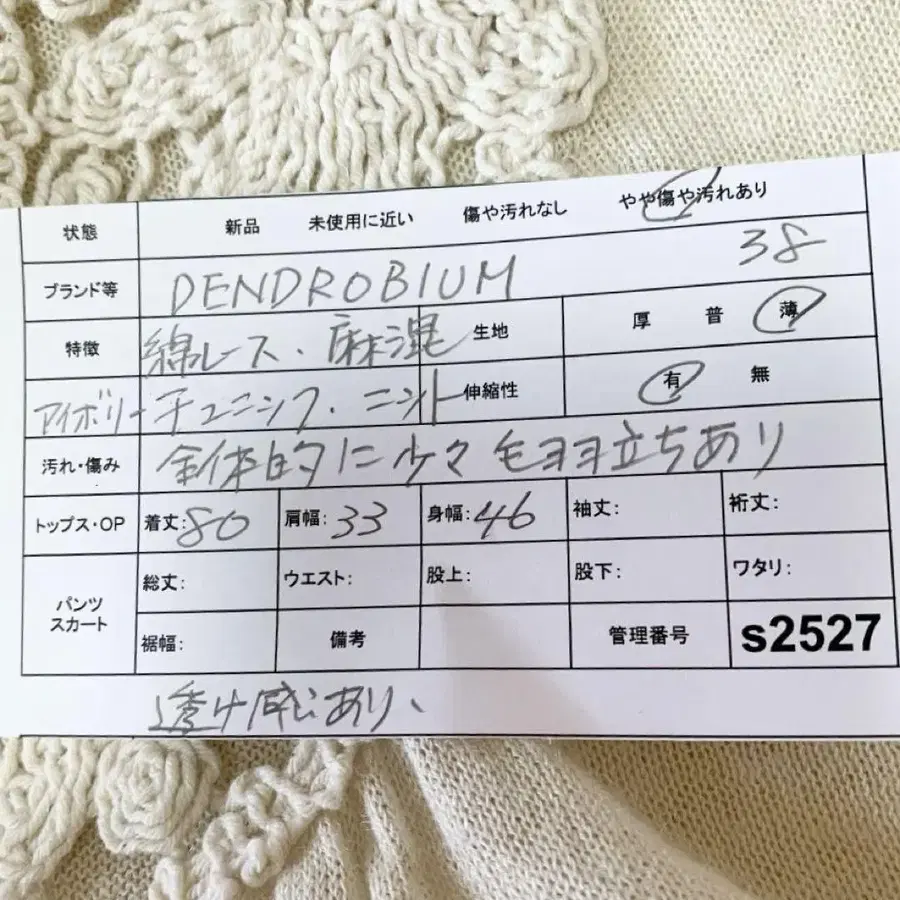 状態 新品 未使用に近い 傷や汚れなし やや傷や汚れあり
ブランド等 DENDROBIUM 38
特徴 綿レース、麻混 生地 厚 普 薄
アイボリー チュニック、ニット 伸縮性 有 無
汚れ・傷み 全体的に少々毛羽立ちあり
トップス・OP 着丈:80 肩幅:33 身幅:46 袖丈: 裄丈:
パンツ スカート 総丈: ウエスト: 股上: 股下: ワタリ:
裾幅: 備考 管理番号 s2527
透け感あり、